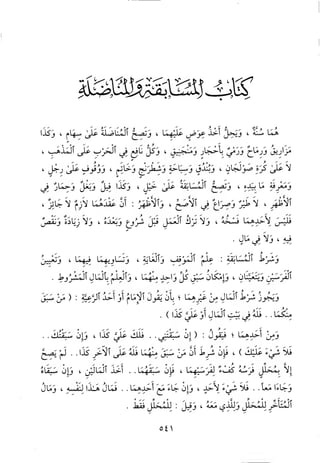 كتاب المسابقة والمناضلة
هما سنة ، ويجوز أخذ عوض عليهما ، وتصح المناضلة على سهام ، وكذا
مزاريق ورماح ورمي بأحجار ومنجنيق ، وكل نافع في الحرب على المذهب ،
لا على كرة صولجان ، وبندق وسباحة وشطرنج وخاتم ، ووقوف على رجل ،
ومعرفة ما بيده ، وتصح المسابقة على خيل ، وكذا فيل وبغل وحمار في
الأظهر ، لا طير وصراع في الأصح ، والأظهر : أن عقدهما لازم لا جائز ،
فليس لأحدهما فسخه ، ولا ترك العمل قبل شروع وبعده ، ولا زيادة ونقص
فيه ، ولا في مال .
وشرط المسابقة : علم الموقف والغاية ، وتساويهما فيهما ، وتعيين
الفرسين ويتعينان ، وإمكان سبق كل واحد منهما ، والعلم بالمال المشروط .
ويجوز شرط المال من غيرهما ؛ بأن يقول الإمام أو أحد الرعية : ( من سبق
منكما .. فله في بيت المال أو علي كذا ) .
ومن أحدهما ؛ فيقول : ( إن سبقتني .. فلك علي كذا ، وإن سبقتك ..
فلا شيء عليك ) ، فإن شرط أن من سبق منهما فله على الآخر كذا .. لم يصح
إلا بمحلل فرسه كفء لفرسيهما ، فإن سبقهما .. أخذ المالين ، وإن سبقاه
وجاءا معا .. فلا شيء لأحد ، وإن جاء مع أحدهما .. فمال هذا لنفسه ، ومال
المتأخر للمحلل وللذي معه ، وقيل : للمحلل فقط .
٥٤١